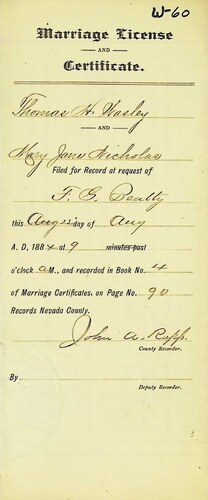 W-60
Marriage License
AND
Certificate.
Thomas H. Wasley
AND
Mary Jane Nicholas
Filed for Record at request of
F. G. Beatty
this Aug 22 day of Aug
A. D, 1884 at 9 minutes past
o'clock A M., and recorded in Book No. 4
of Marriage Certificates, on Page No. 90
Records Nevada County.
John A. Rapp.
County Recorder.
By
Deputy Recorder.